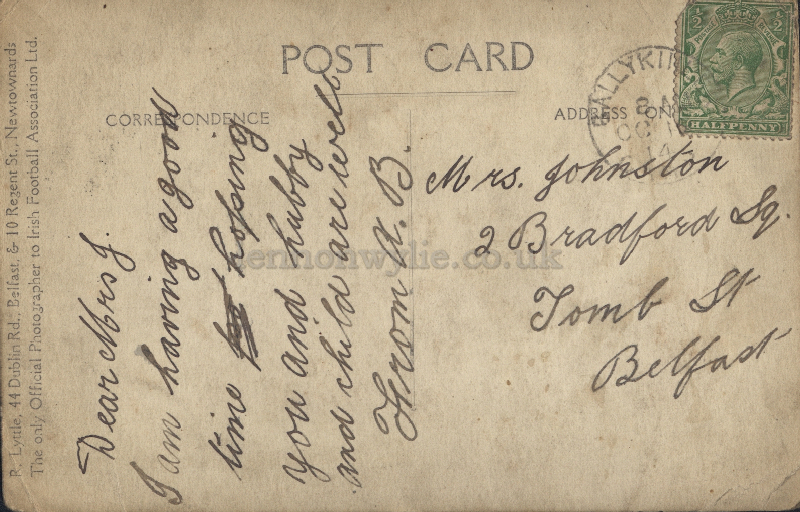 POST CARD
CORRESPONDENCE
ADDRESS ON
R. Lyttle, 44 Dublin Rd., Belfast, & 10 Regent St., Newtownards
The only Official Photographer to Irish Football Association Ltd.
Dear Mrs J.
I am having a good
time hoping
you and hubby
and child are well
From X. B.
Mrs. Johnston
2 Bradford Sq.
Tomb St
Belfast
BALLYKIN
8 A
OC 1
14
½ ½
HALFPENNY
lennonwylie.co.uk